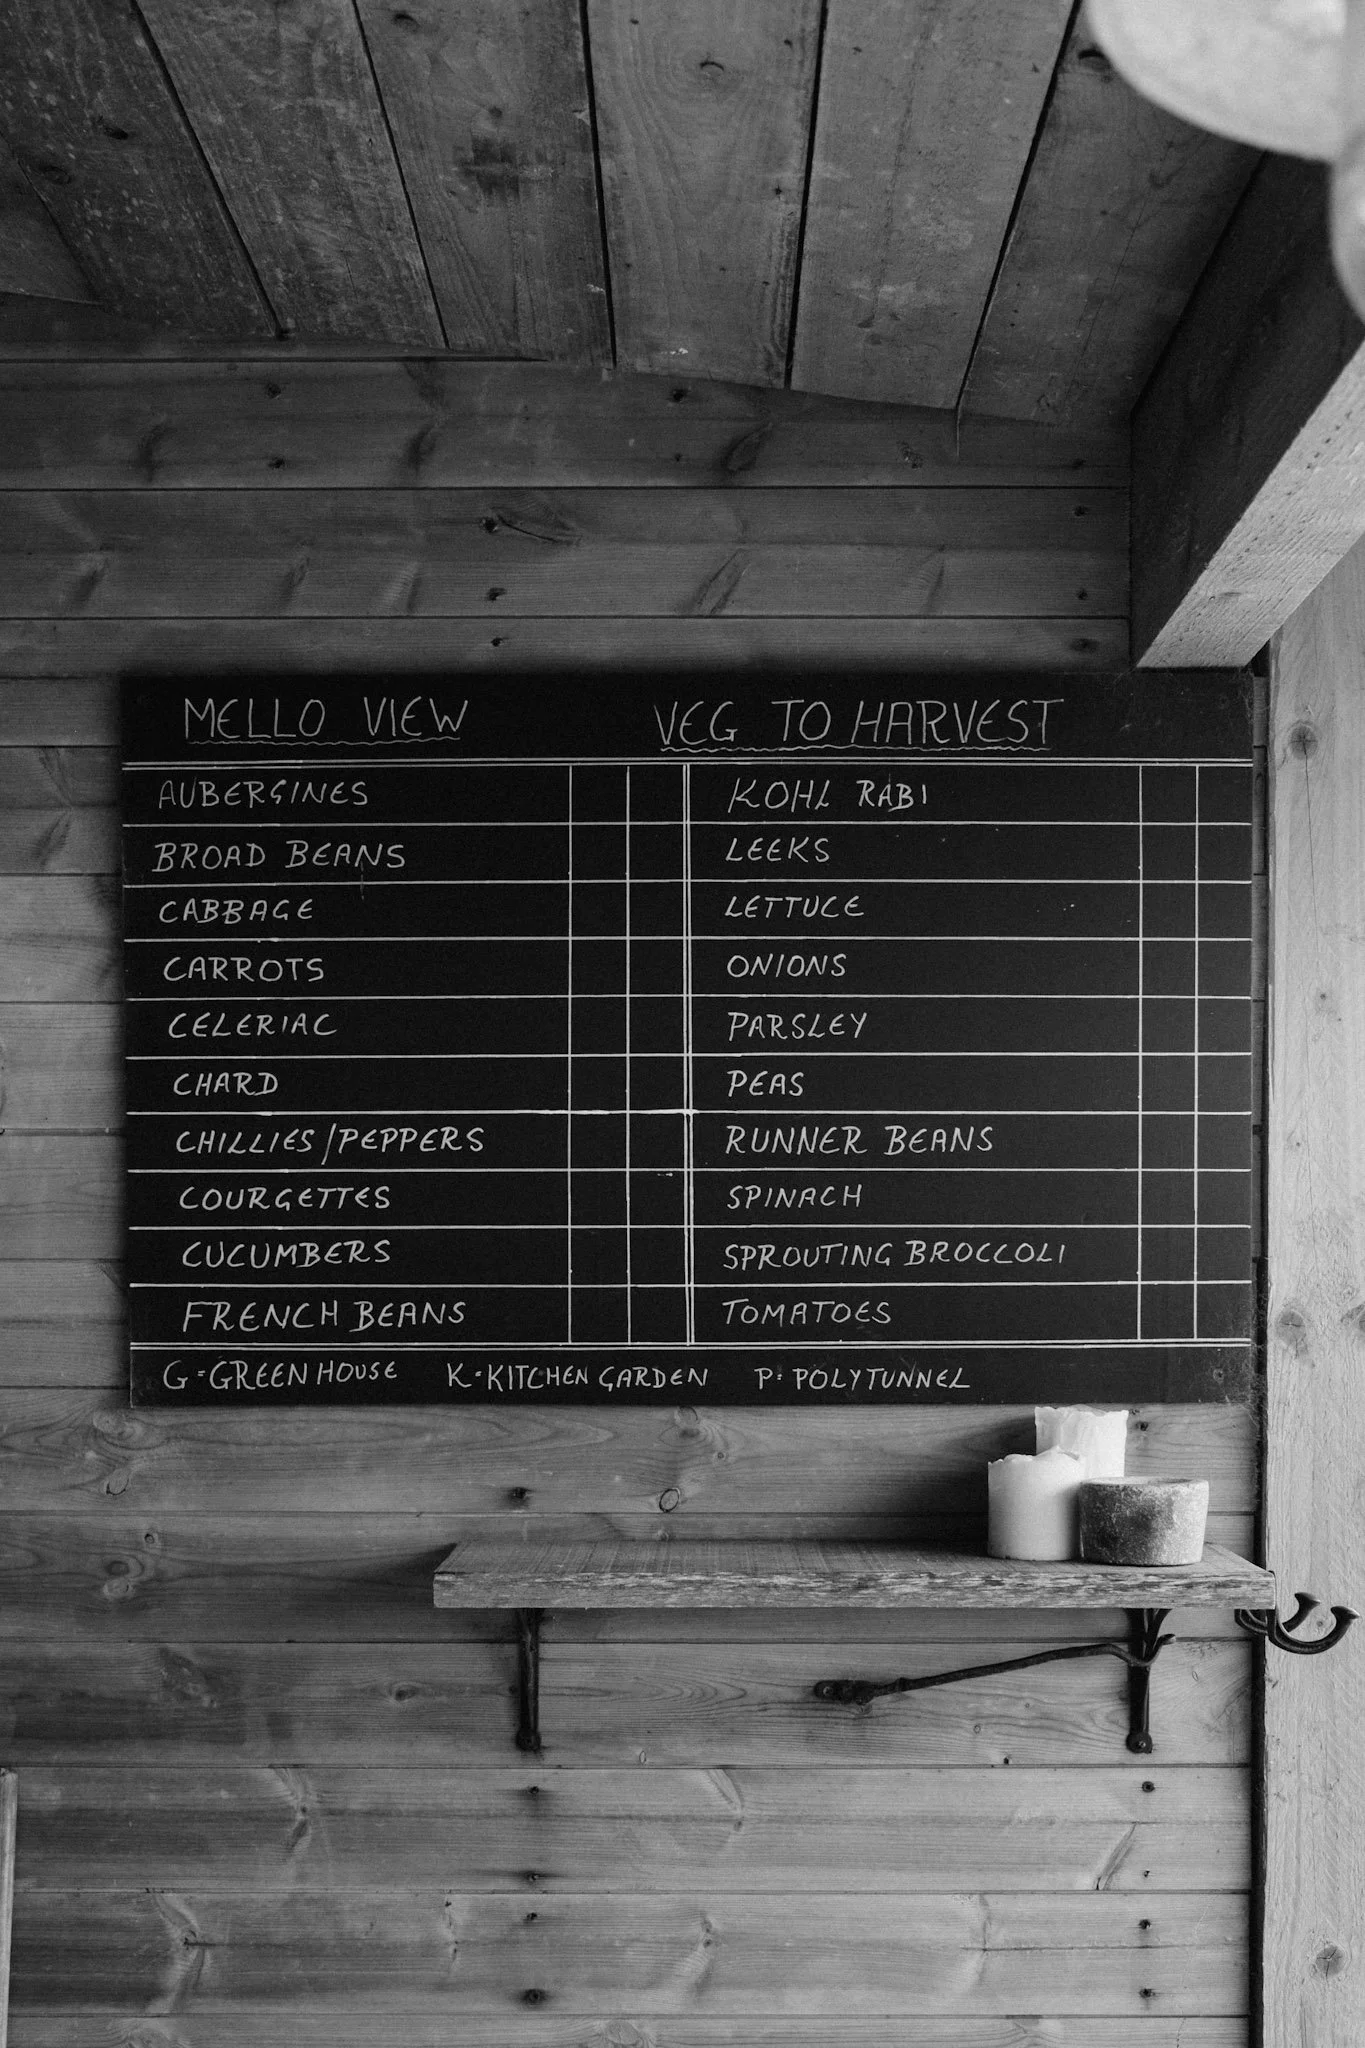 MELLO VIEW VEG TO HARVEST
AUBERGINES
BROAD BEANS
CABBAGE
CARROTS
CELERIAC
CHARD
CHILLIES/PEPPERS
COURGETTES
CUCUMBERS
FRENCH BEANS
KOHL RABI
LEEKS
LETTUCE
ONIONS
PARSLEY
PEAS
RUNNER BEANS
SPINACH
SPROUTING BROCCOLI
TOMATOES
G=GREENHOUSE K=KITCHEN GARDEN P=POLYTUNNEL